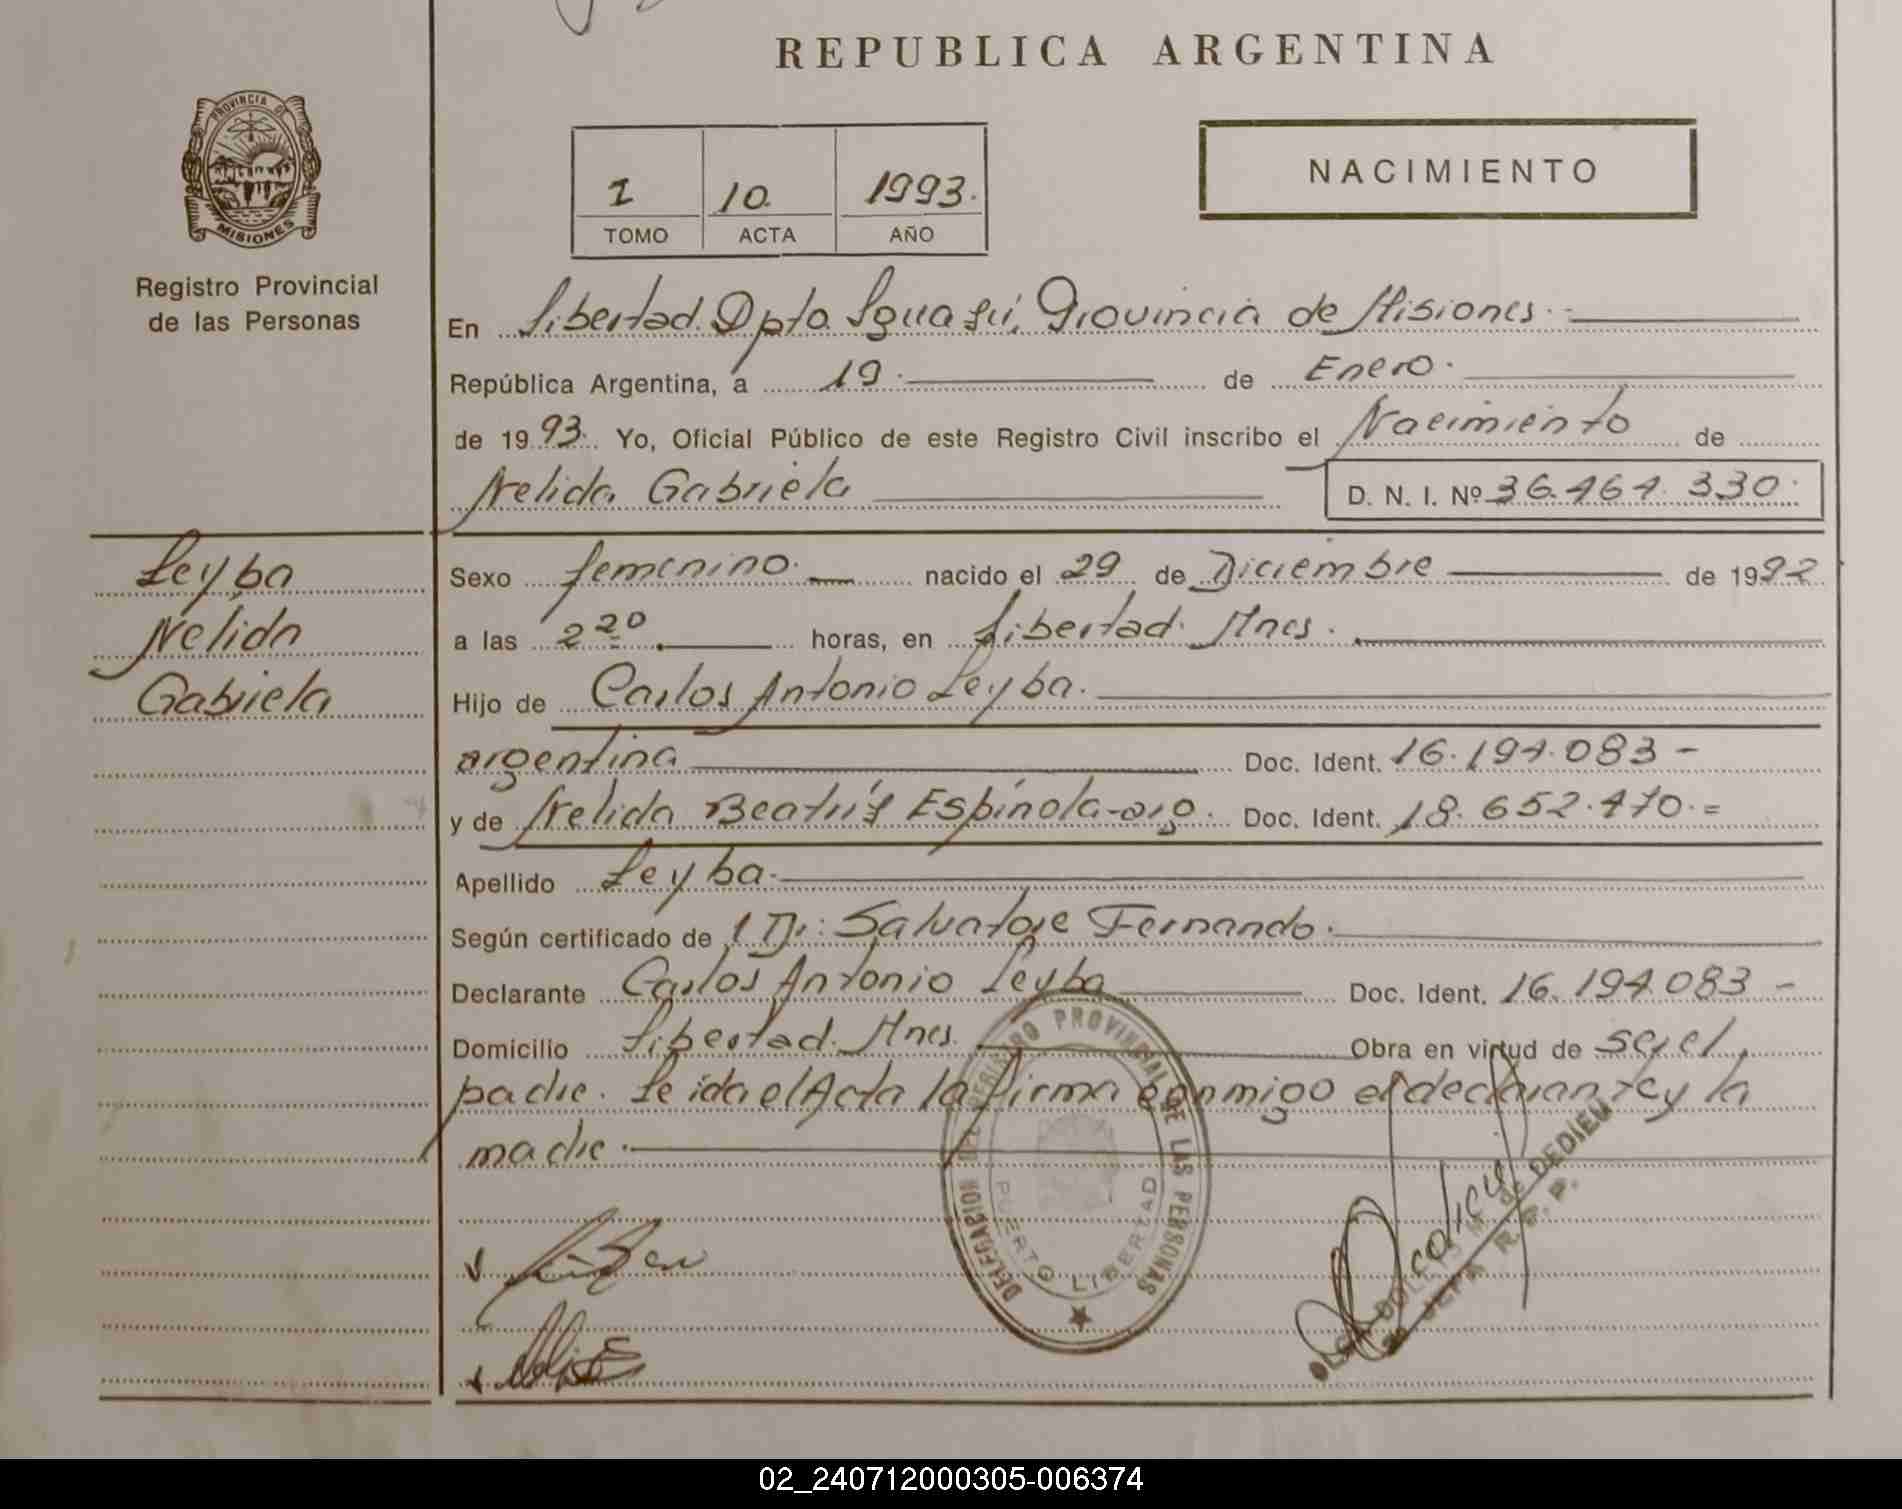 REPUBLICA ARGENTINA
PROVINCIA DE
MISIONES
Registro Provincial
de las Personas
I 10. 1993.
TOMO ACTA AÑO
NACIMIENTO
En Libertad. Dpto Iguasú, Provincia de Misiones.
República Argentina, a 19. de Enero.
de 1993. Yo, Oficial Público de este Registro Civil inscribo el Nacimiento de
Nelida Gabriela D. N. I. Nº 36.464.330.
Leyba
Nelida
Gabriela
Sexo femenino. nacido el 29 de Diciembre de 1992
a las 2 20 horas, en Libertad. Mnes.
Hijo de Carlos Antonio Leyba.
argentina Doc. Ident. 16.194.083 -
y de Nelida Beatríz Espínola-arg. Doc. Ident. 18.652.470.=
Apellido Leyba.
Según certificado de 1 Dr: Salvatore Fernando.
Declarante Carlos Antonio Leyba Doc. Ident. 16.194.083 -
Domicilio Libertad. Mnes. Obra en virtud de ser el
padre. Leida el Acta la firma conmigo el declarante y la
madre.
DELEGACION DE REGISTRO PROVINCIAL DE LAS PERSONAS
PUERTO LIBERTAD
M. de DEDIEU
JEFA R. P.
02_240712000305-006374